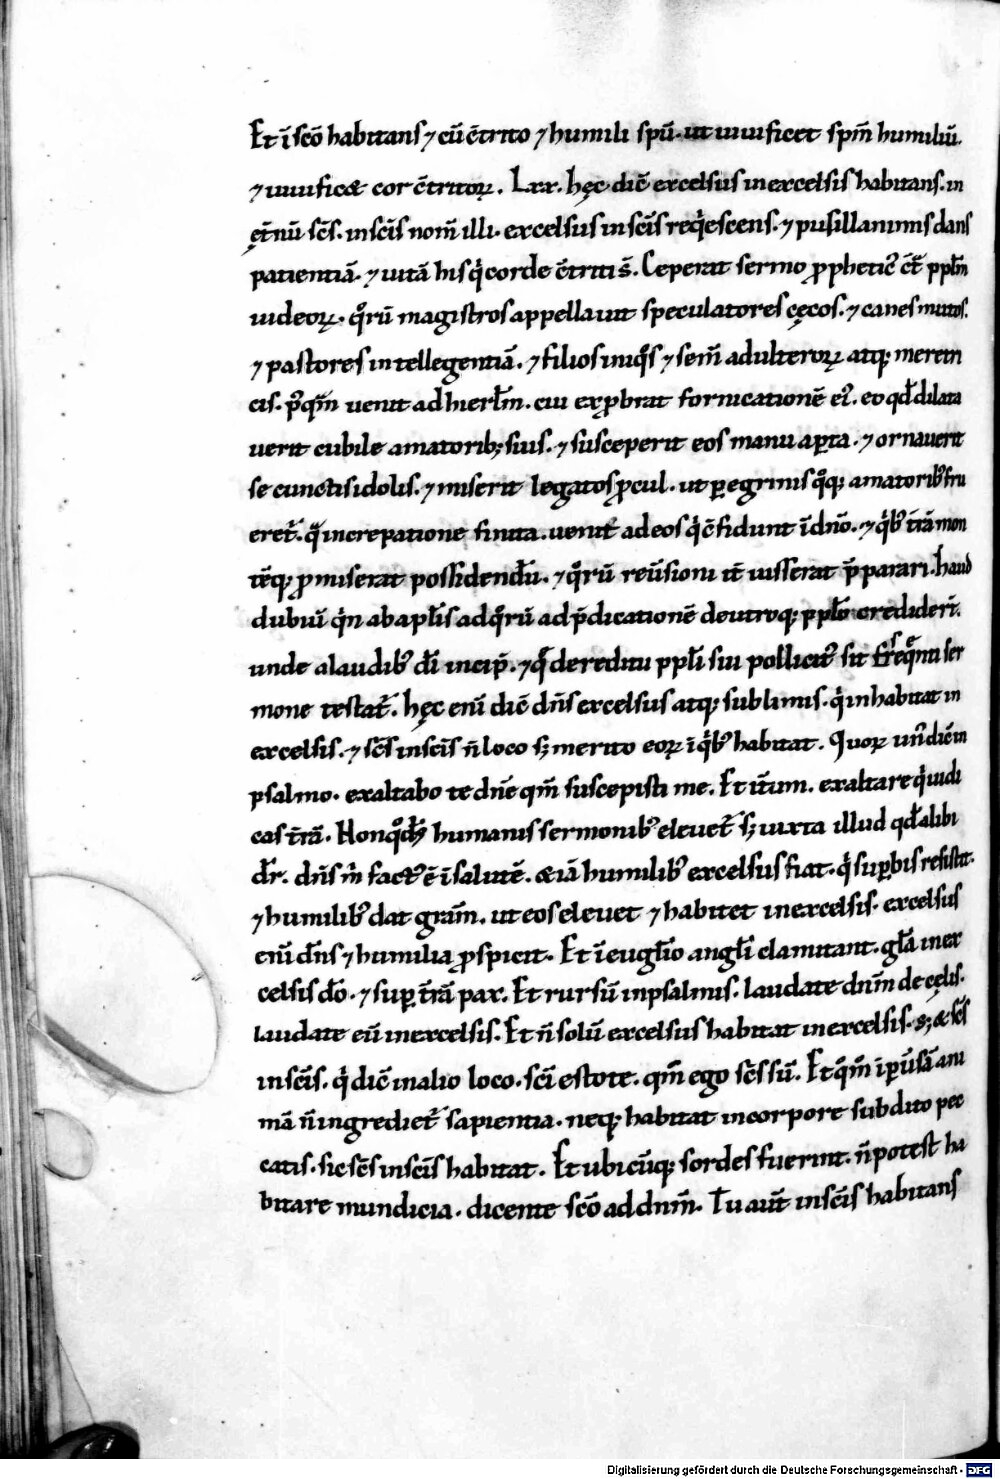 Et ī scō habitans ⁊ cū c̄trito ⁊ humili spū. ut uiuificet sp̄m humiliū.
⁊ uiuificet cor c̄tritoꝝ. Lxx. hęc dic̄ excelsus in excelsis habitans. in
ęt̄nū sc̄s. in sc̄is nom̄ illi. excelsus in sc̄is reqͥescens. ⁊ pusillanimis dans
patientiā. ⁊ uitā his qͥ corde c̄triti s̄. Ceperat sermo ꝓpheticꝰ c̄t̄ ppl̄m
iudeoꝝ. qͦrū magistros appellauit speculatores cęcos. ⁊ canes mutos.
⁊ pastores intellegentiā. ⁊ filios iniqͦs ⁊ sem̄ adulteroꝝ atq; meretri
cis. p̄qͣm uenit ad hierl̄m. cui exꝓbrat fornicationē eiꝰ. eo qd̄ dilata
uerit cubile amatorib; suis. ⁊ susceperit eos manu aꝑta. ⁊ ornauerit
se cunctis idolis. ⁊ miserit legatos ꝓcul. ut ꝑegrinis qͦq; amatoribꝰ fru
eret̄. qͣ increpatione finita. uenit ad eos qͥ c̄fidunt ī dn̄o. ⁊ qͥbꝰ tr̄ā mon
tēq; ꝓmiserat possidendū. ⁊ qͦrū reūsioni it̄ iusserat p̄parari. haud
dubiū qͥn ab apl̄is ad qͦrū ad p̄dicationē de utroq; ppl̄o credider̄.
unde a laudibꝰ dī incip̄. ⁊ qͣ de reditu ppl̄i sui pollicitꝰ sit frs̄eqͣnti ser
mone testat̄. hęc enī dic̄ dn̄s excelsus atq; sublimis. qͥ inhabitat in
excelsis. ⁊ sc̄s in sc̄is n̄ loco s; merito eoꝝ ī qͥbꝰ habitat. Quoꝝ un̄ dic̄ in
psalmo. exaltabo te dn̄e qm̄ suscepisti me. Et it̄um. exaltare qͥ iudi
cas tr̄ā. Non qͦd humanis sermonibꝰ eleuet̄ s; iuxta illud qd̄ alibi
dr̄. dn̄s m̄ factꝰ ē ī salutē. etiā humilibꝰ excelsus fiat. qͥ suꝑbis resistit.
⁊ humilibꝰ dat gr̄am. ut eos eleuet ⁊ habitet in excelsis. excelsus
enī dn̄s ⁊ humilia ꝓspicit. Et ī euglīo angl̄i clamitant. gl̄a in ex
celsis d̄o. ⁊ suꝑ tr̄ā pax. Et rursū in psalmis. laudate dn̄m de cęlis.
laudate eū in excelsis. Et n̄ solū excelsus habitat in excelsis. s; & sc̄s
in sc̄is. qͥ dic̄ in alio loco. sc̄i estote. qm̄ ego sc̄s sū. Et qͦm̄ ī ꝑūsā ani
mā n̄ ingrediet̄ sapientia. neq; habitat in corpore subdito pec
catis. sic sc̄s in sc̄is habitat. Et ubicūq; sordes fuerint. n̄ potest ha
bitare mundicia. dicente sc̄o ad dn̄m. Tu aut̄ in sc̄is habitans
Digitalisierung gefördert durch die Deutsche Forschungsgemeinschaft - DFG